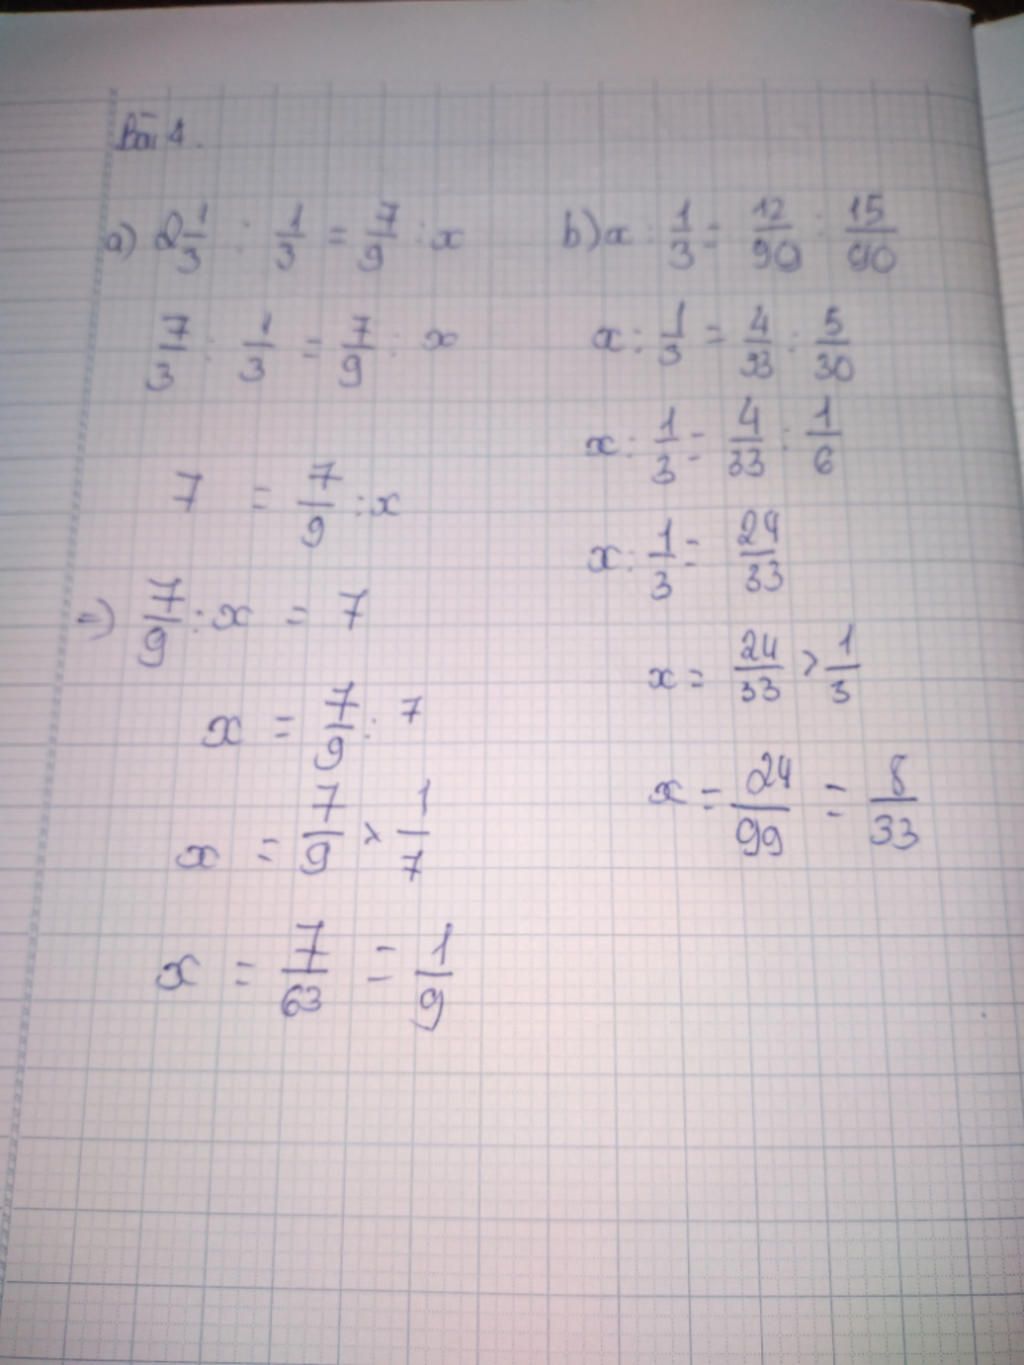 Bài 4.
a) 2 1/3 : 1/3 = 7/9 : x
7/3 : 1/3 = 7/9 : x
7 = 7/9 : x
=) 7/9 : x = 7
x = 7/9 : 7
x = 7/9 × 1/7
x = 7/63 = 1/9
b) x : 1/3 = 12/90 : 15/90
x : 1/3 = 4/33 : 5/30
x : 1/3 = 4/33 : 1/6
x : 1/3 = 24/33
x = 24/33 × 1/3
x = 24/99 = 8/33